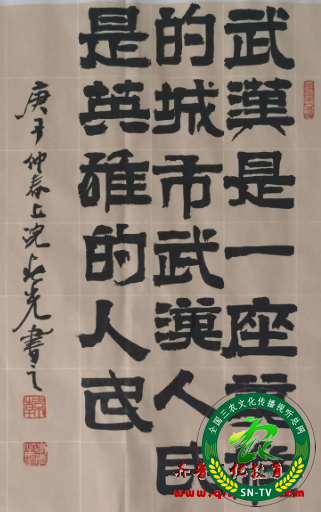 武漢是一座英雄
的城市武漢人民
是英雄的人民
庚子仲春上浣光書之
全国三农文化传播视听总网
SN-TV